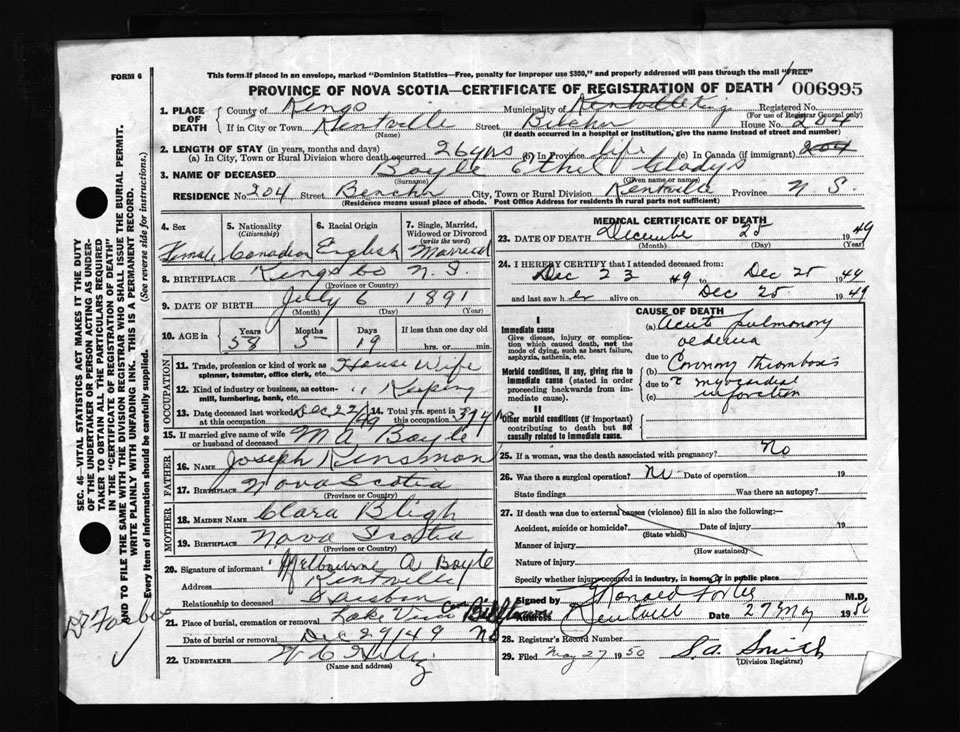 FORM 6
This form if placed in an envelope, marked "Dominion Statistics—Free, penalty for improper use $300," and properly addressed will pass through the mail "FREE"
PROVINCE OF NOVA SCOTIA—CERTIFICATE OF REGISTRATION OF DEATH 006995
1. PLACE OF DEATH
County of Kings Municipality of Kentville Registered No.
(For use of Registrar General only)
If in City or Town Kentville Street House No. 204
(Name) (If death occurred in a hospital or institution, give the name instead of street and number)
2. LENGTH OF STAY (in years, months and days)
(a) In City, Town or Rural Division where death occurred 26 yrs (b) In Province life (c) In Canada (if immigrant) 204
3. NAME OF DECEASED Boyle Ethel Gladys
(Surname) (Given name or name)
RESIDENCE No. 204 Street City, Town or Rural Division Kentville Province N S.
(Residence means usual place of abode. Post Office Address for residents in rural parts not sufficient)
4. Sex 5. Nationality (Citizenship) 6. Racial Origin 7. Single, Married, Widowed or Divorced (write the word)
Female Canadian English Married
8. BIRTHPLACE Kings Co N. S.
(Province or Country)
9. DATE OF BIRTH July 6 1891
(Month) (Day) (Year)
10. AGE in Years Months Days If less than one day
58 5 19 hrs. or min.
OCCUPATION
11. Trade, profession or kind of work as spinner, teamster, office clerk, etc. House Wife
12. Kind of industry or business, as cotton-mill, lumbering, bank, etc. " Keeping
13. Date deceased last worked at this occupation Dec 22/49 14. Total yrs. spent in this occupation
15. If married give name of wife or husband of deceased M A Boyle
FATHER
16. NAME Joseph Kinsman
17. BIRTHPLACE Nova Scotia
(Province or Country)
MOTHER
18. MAIDEN NAME Clara Bligh
19. BIRTHPLACE Nova Scotia
(Province or Country)
20. Signature of informant Melbourne A Boyle
Address Kentville
Relationship to deceased
21. Place of burial, cremation or removal Lake View
Date of burial or removal Dec 29/49
22. UNDERTAKER
(Name and address)
MEDICAL CERTIFICATE OF DEATH
23. DATE OF DEATH December 25 1949
(Month) (Day) (Year)
24. I HEREBY CERTIFY that I attended deceased from:
Dec 23 49 to Dec 25 1949
and last saw her alive on Dec 25 1949
CAUSE OF DEATH
I
Immediate cause
Give disease, injury or complication which caused death, not the mode of dying, such as heart failure, asphyxia, asthenia, etc.
(a) Acute pulmonary oedema
due to
Morbid conditions, if any, giving rise to immediate cause (stated in order proceeding backwards from immediate cause).
(b) Coronary thrombosis
due to
(c) myocardial infarction
II
Other morbid conditions (if important) contributing to death but not causally related to immediate cause.
25. If a woman, was the death associated with pregnancy? No
26. Was there a surgical operation? No Date of operation 19
State findings Was there an autopsy?
27. If death was due to external causes (violence) fill in also the following:
Accident, suicide or homicide? Date of injury 19
(State which)
Manner of injury
(How sustained)
Nature of injury
Specify whether injury occurred in industry, in home, or in public place
Signed by M.D.
Address Kentville Date 27 May 1950
28. Registrar's Record Number
29. Filed May 27 1950 S.A. Smith
(Division Registrar)
SEC. 46—VITAL STATISTICS ACT MAKES IT THE DUTY
OF THE UNDERTAKER OR PERSON ACTING AS UNDERTAKER TO OBTAIN ALL THE PARTICULARS REQUIRED
IN THE "CERTIFICATE OF REGISTRATION OF DEATH"
AND TO FILE THE SAME WITH THE DIVISION REGISTRAR WHO SHALL ISSUE THE BURIAL PERMIT.
WRITE PLAINLY WITH UNFADING INK. THIS IS A PERMANENT RECORD.
Every item of information should be carefully supplied. (See reverse side for instructions.)
Dr Forbes